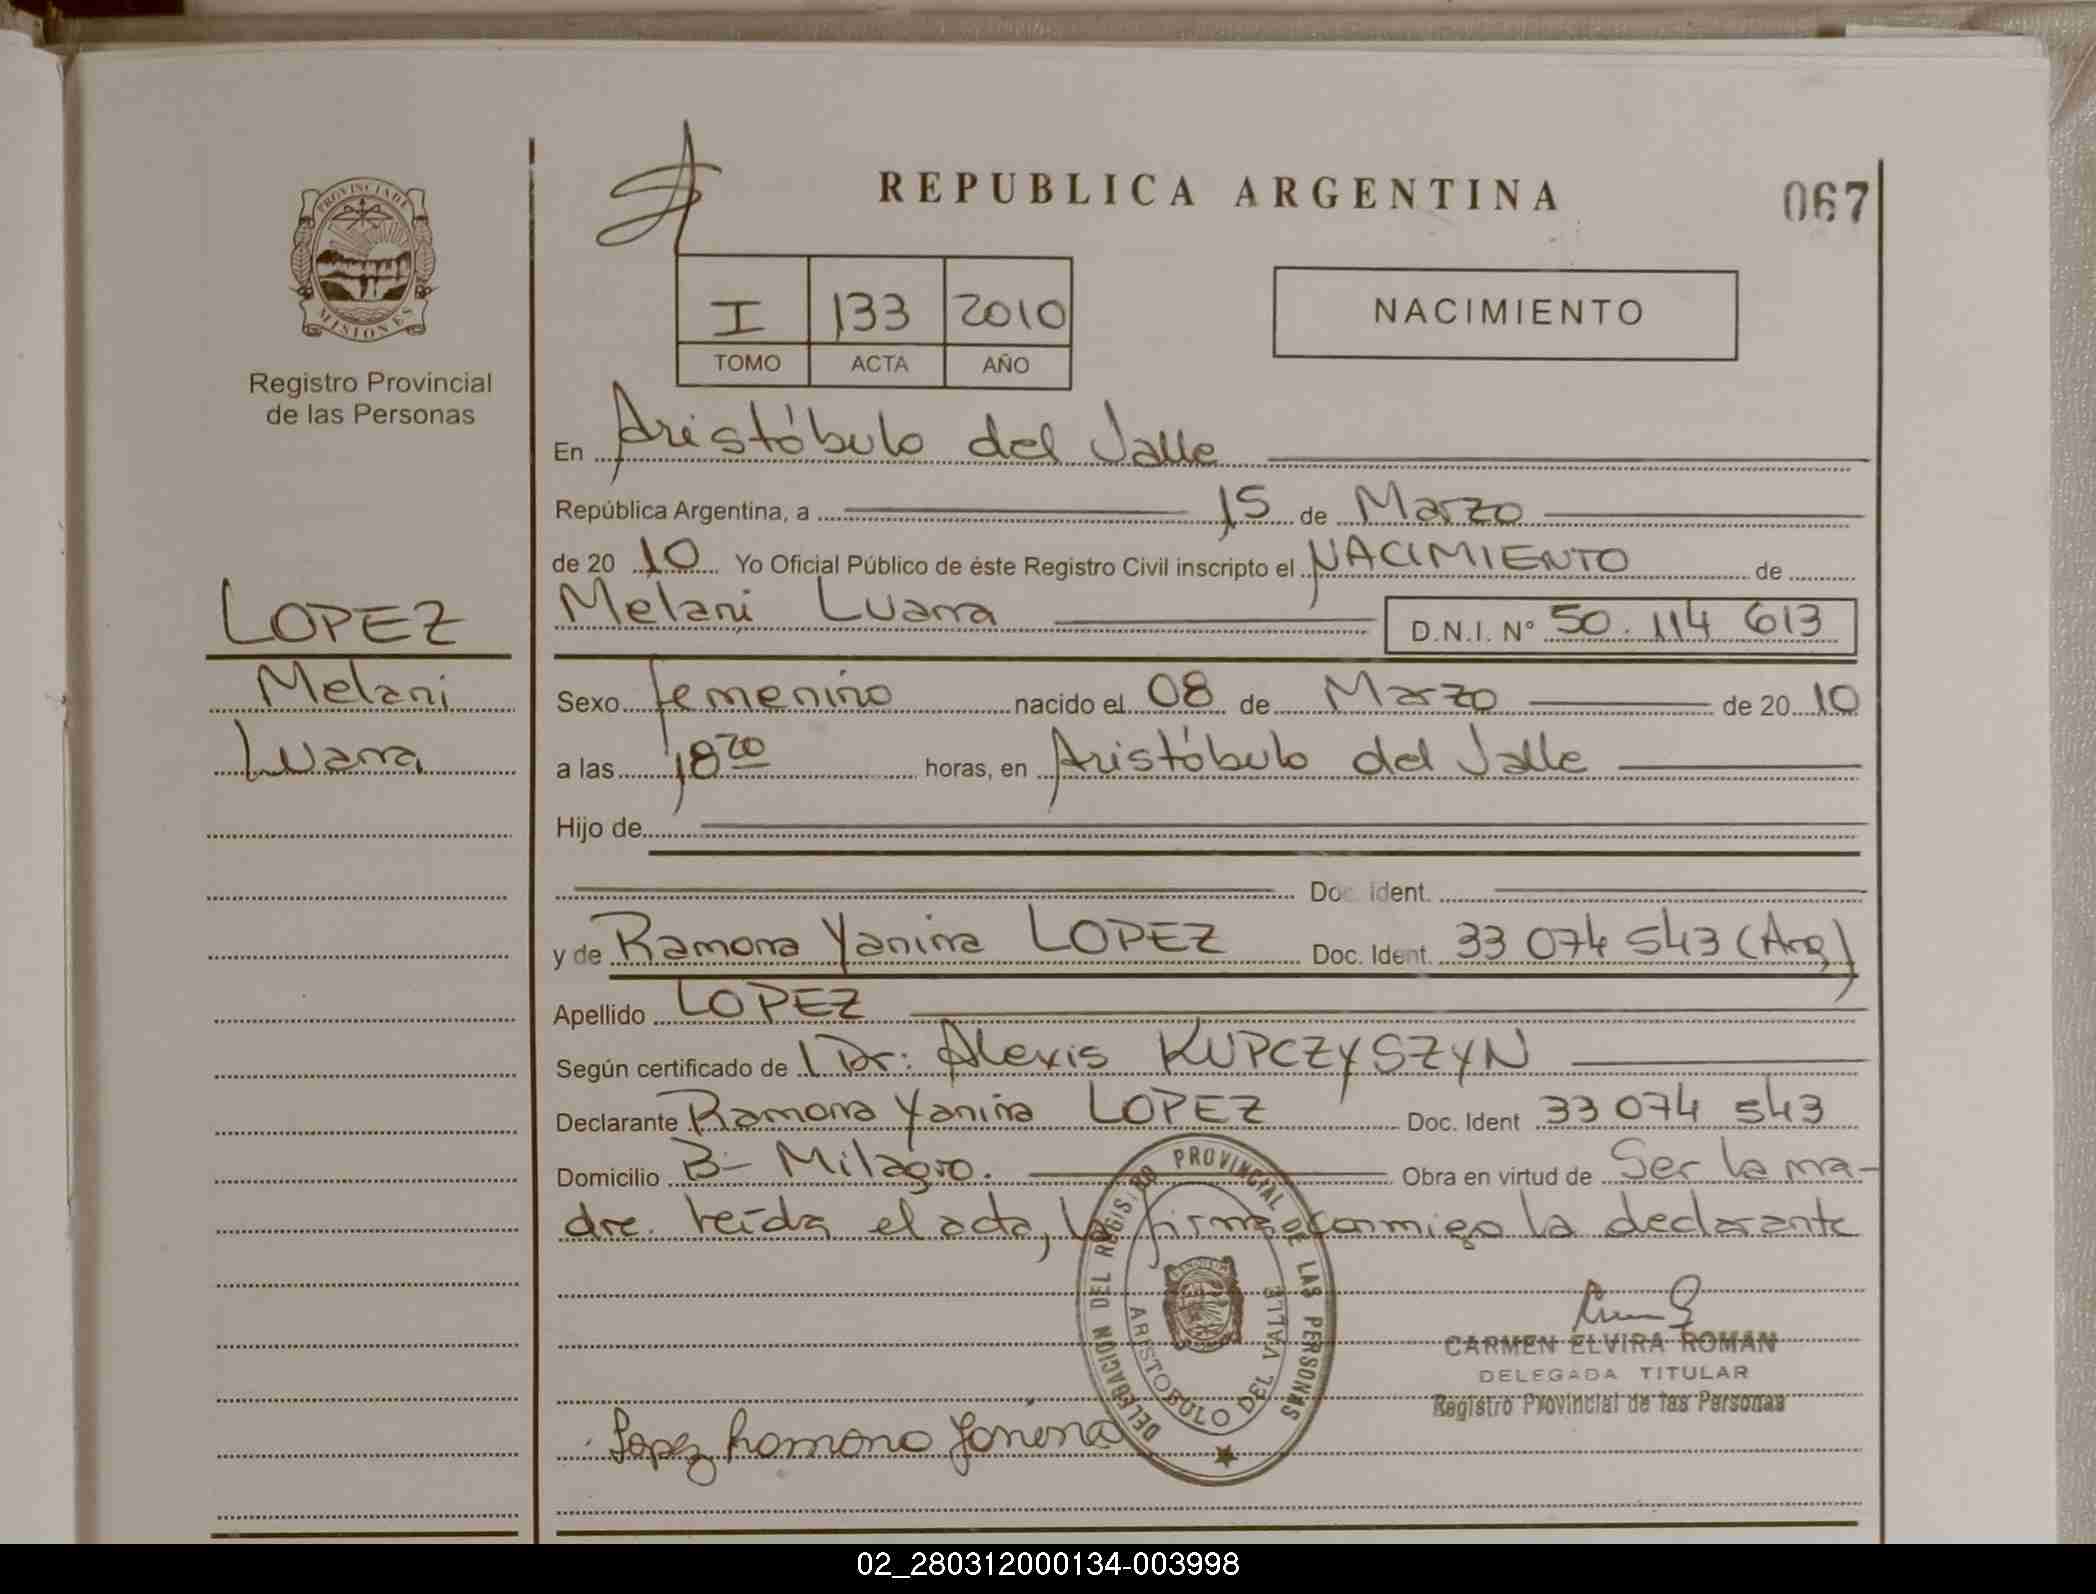 PROVINCIA DE
MISIONES
Registro Provincial
de las Personas
LOPEZ
Melani
Luana
REPUBLICA ARGENTINA
067
I 133 2010
TOMO ACTA AÑO
NACIMIENTO
En Aristóbulo del Valle
República Argentina, a 15 de Marzo
de 20 10 Yo Oficial Público de éste Registro Civil inscripto el NACIMIENTO de
Melani Luana D.N.I. N° 50.114 613
Sexo femenino nacido el 08 de Marzo de 20 10
a las 18 20 horas, en Aristóbulo del Valle
Hijo de
Doc. Ident.
y de Ramona Yanina LOPEZ Doc. Ident. 33 074 543 (Arg)
Apellido LOPEZ
Según certificado de Dr: Alexis KUPCZYSZYN
Declarante Ramona Yanina LOPEZ Doc. Ident 33 074 543
Domicilio B- Milagro. Obra en virtud de Ser la ma-
dre. leída el acta, la firma conmigo la declarante
DELEGACION DEL REGISTRO PROVINCIAL DE LAS PERSONAS
ARISTOBULO DEL VALLE
CARMEN ELVIRA ROMAN
DELEGADA TITULAR
Registro Provincial de las Personas
Lopez Ramona Janina
02_280312000134-003998